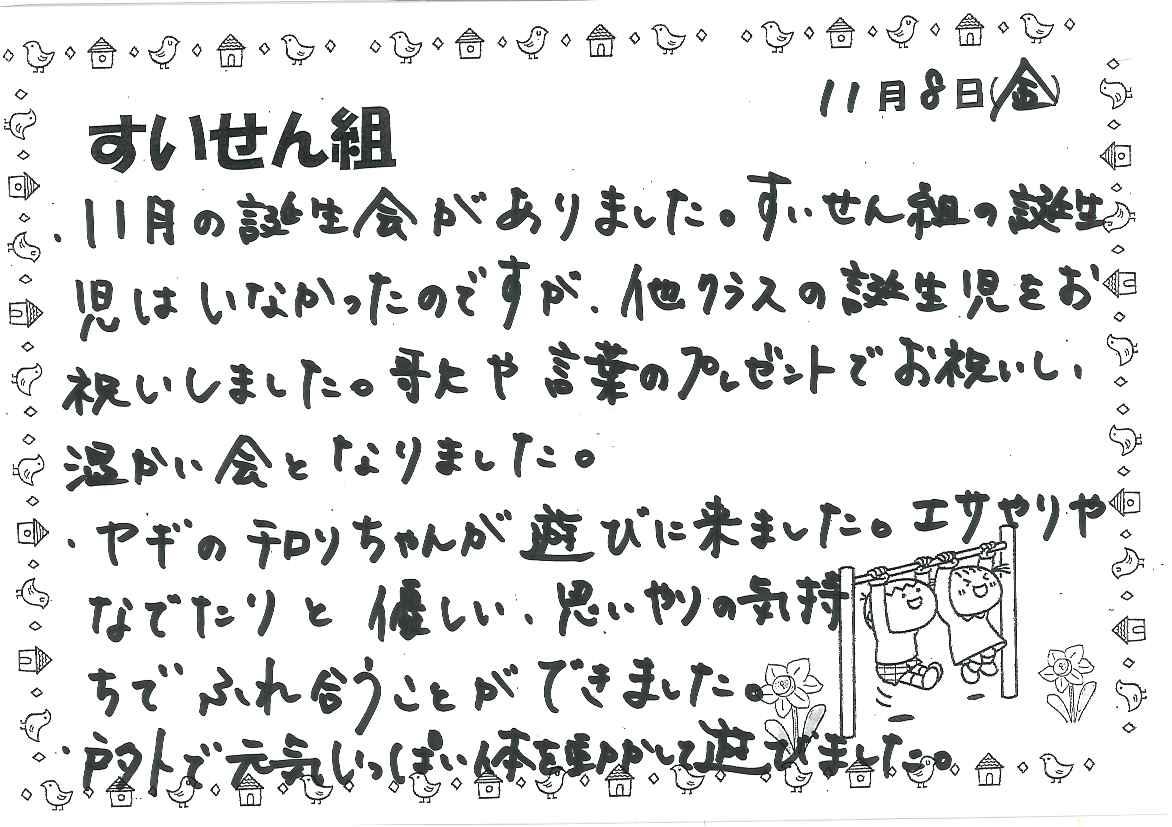 11月8日(金)
すいせん組
・11月の誕生会がありました。すいせん組の誕生
児はいなかったのですが、他クラスの誕生児をお
祝いしました。歌や言葉のプレゼントでお祝いし、
温かい会となりました。
・ヤギのチロリちゃんが遊びに来ました。エサやりや
なでたりと優しい、思いやりの気持
ちでふれ合うことができました。
・戸外で元気いっぱい体を動かして遊びました。